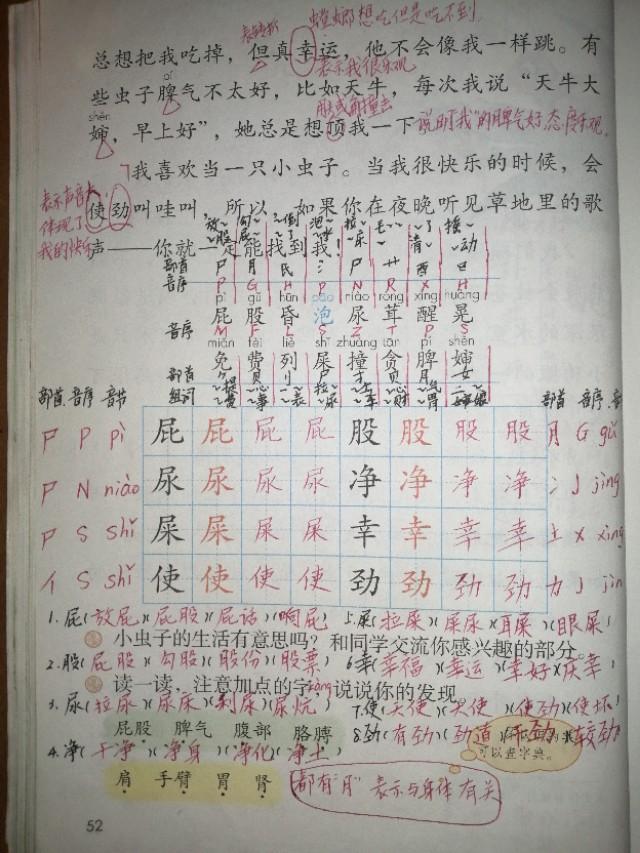 表转折 螳螂想吃但是吃不到
总想把我吃掉，但真幸运，他不会像我一样跳。有
表示我很乐观
些虫子脾气不太好，比如天牛，每次我说“天牛大
婶，早上好”，她总是想顶我一下 说明"我"的脾气好,态度乐观.
我喜欢当一只小虫子。当我很快乐的时候，会
表示声音大
体现了
我的快乐
使劲叫哇叫，所以，如果你在夜晚听见草地里的歌
声——你就一定能找到我！
部首 尸 月 氏 氵 尸 艹 酉 日
音序 P G H P N R X H
pì gǔ hūn pào niào róng xǐng huàng
屁 股 昏 泡 尿 茸 醒 晃
音序 M F L S Z T P S
miǎn fèi liè shǐ zhuàng tān pí shěn
免 费 列 屎 撞 贪 脾 婶
部首
组词
部首 音序 音节 部首 音序
尸 P pì 屁 屁 屁 屁 股 股 股 股 月 G gǔ
尸 N niào 尿 尿 尿 尿 净 净 净 净 冫 J jìng
尸 S shǐ 屎 屎 屎 屎 幸 幸 幸 幸 土 X xìng
亻 S shǐ 使 使 使 使 劲 劲 劲 劲 力 J jìn
1.屁(放屁)(屁股)(屁话)(响屁) 5.屎(拉屎)(屎尿)(耳屎)(眼屎)
小虫子的生活有意思吗？和同学交流你感兴趣的部分。
2.股(屁股)(勾股)(股份)(股票) 6.幸(幸福)(幸运)(幸好)(庆幸)
读一读，注意加点的字，说说你的发现。
3.尿(拉尿)(尿床)(利尿)(尿炕) 7.使(天使)(大使)(使劲)(使坏)
屁股 脾气 腹部 胳膊
4.净(干净)(净身)(净化)(净土) 8.劲(有劲)(劲道)(较劲)
可以查字典。
肩 手臂 胃 肾
都有"月" 表示与身体有关
52